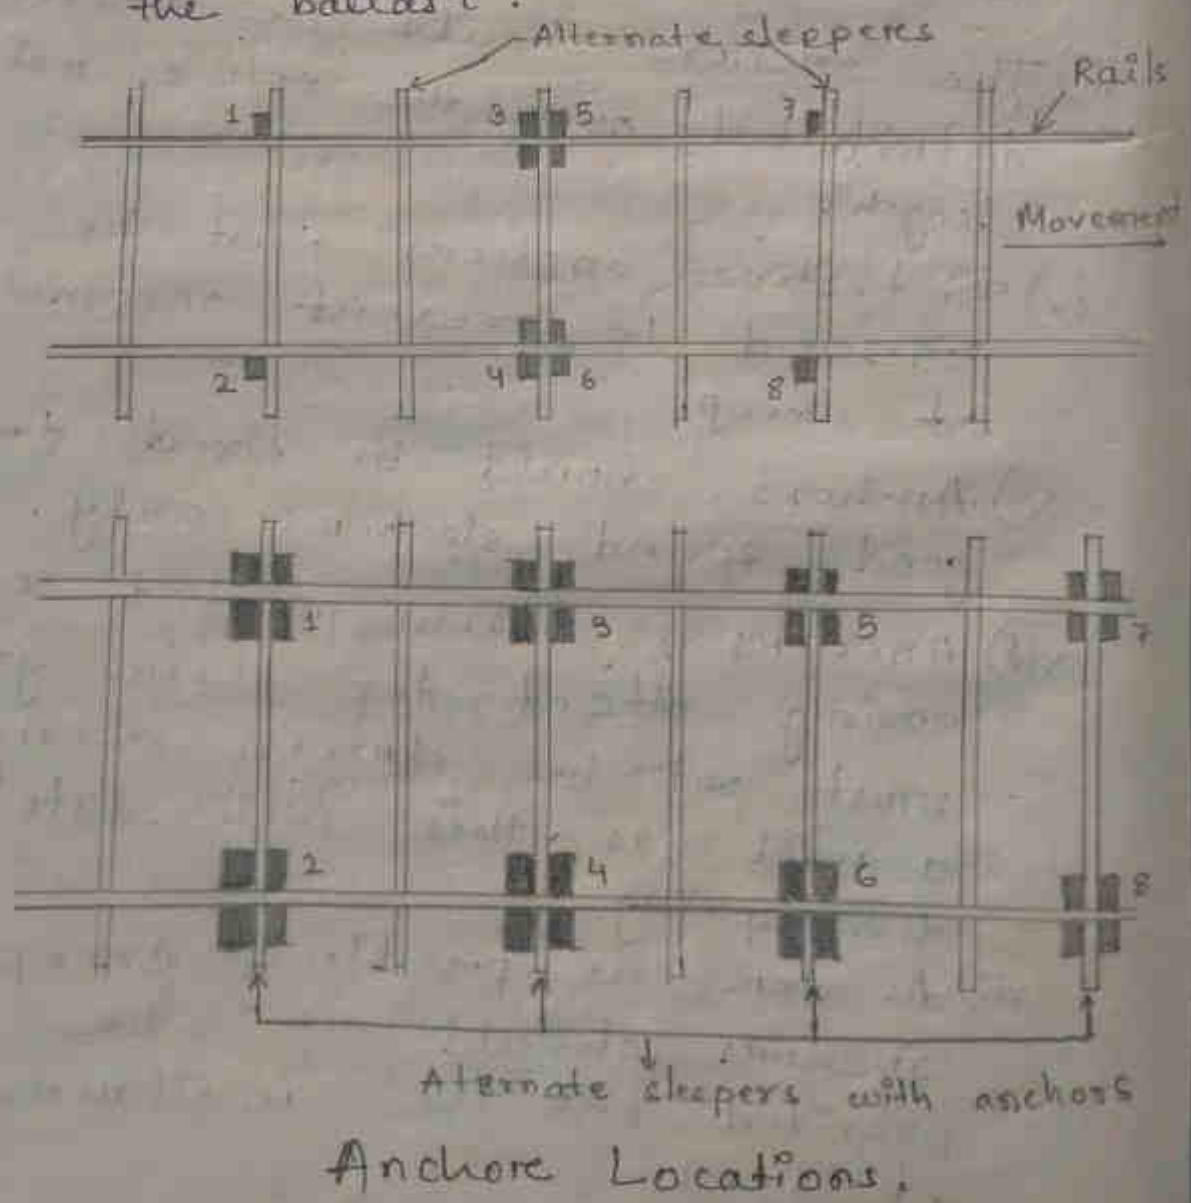 the ballast.
Alternate slepperes
Rails
1 3 5 7
Movement
2 4 6 8
1 3 5 7
2 4 6 8
Aternate sleepers with anchors
Anchore Locations.